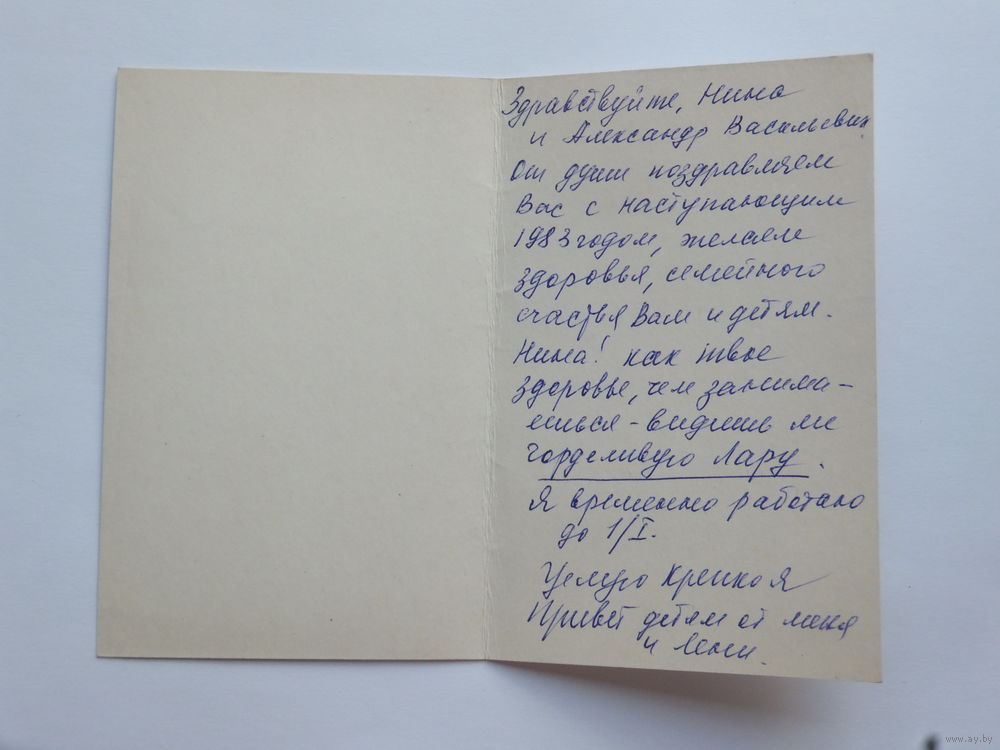 Здравствуйте, Нина
и Александр Васильевич
От души поздравляем
Вас с наступающим
1983 годом, желаем
здоровья, семейного
счастья Вам и детям.
Нина! как твое
здоровье, чем занима-
ешься - видишь ли
горделивую Лару.
Я временно работаю
до 1/I.
Целую крепко я
Привет детям от меня
и Лёни.
www.ay.by